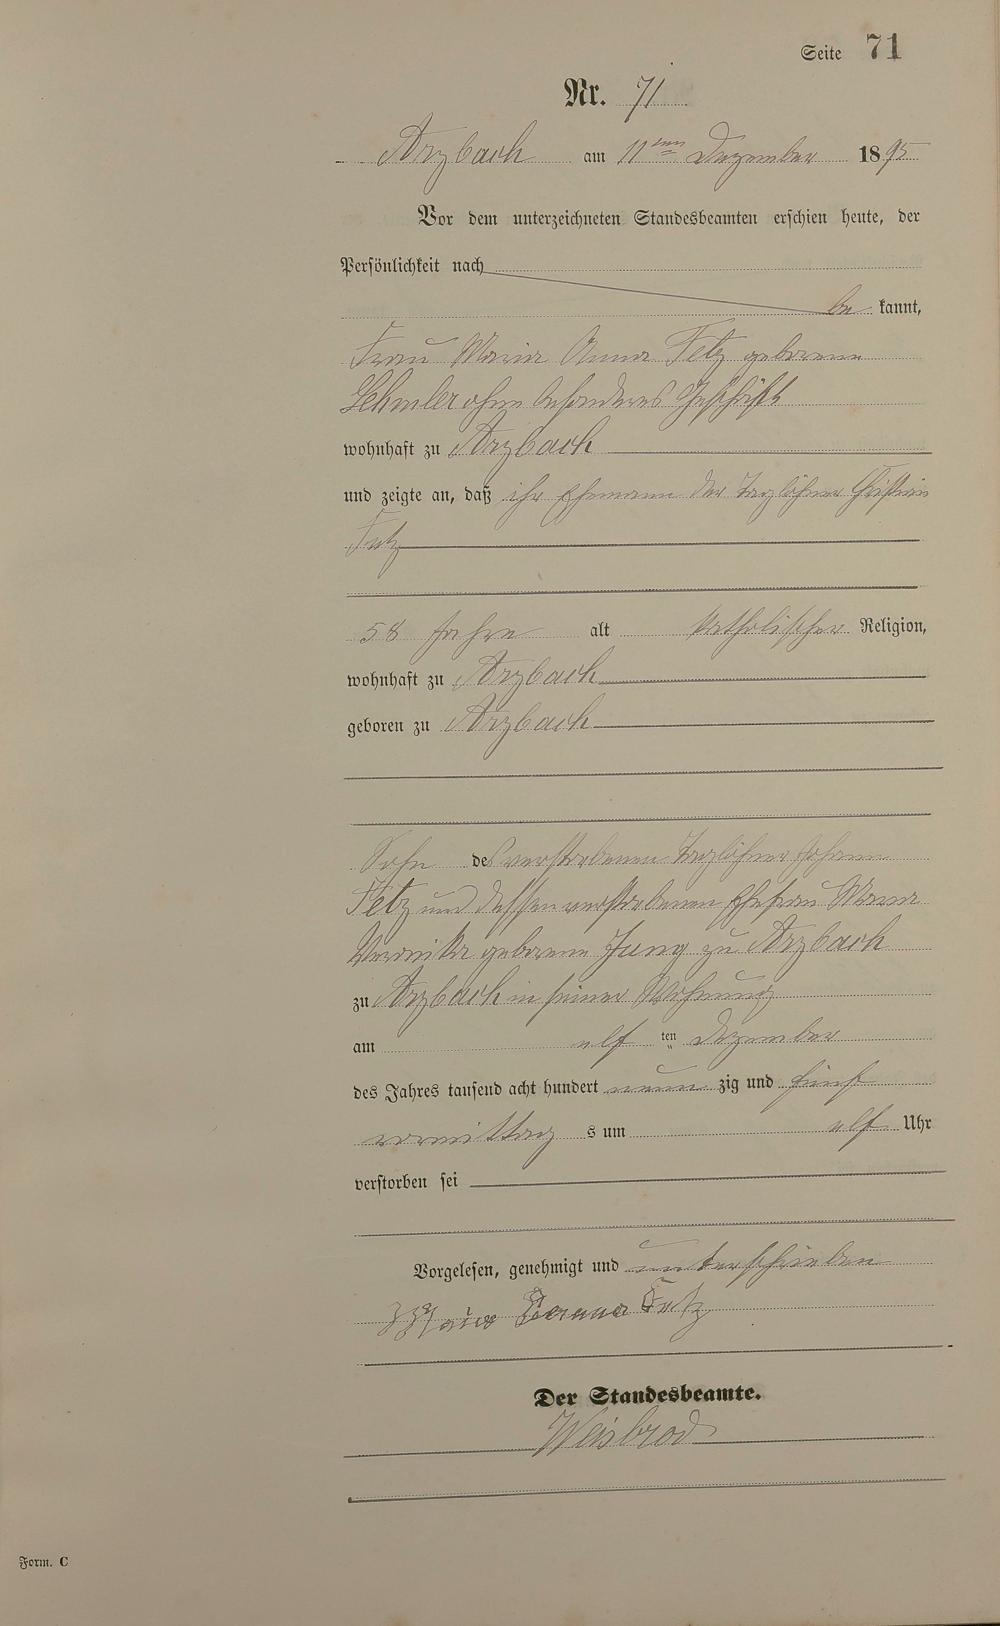 Seite 71
Nr. 71
Arzbach am 11ten Dezember 1895
Vor dem unterzeichneten Standesbeamten erschien heute, der
Persönlichkeit nach
be kannt,
Frau Maria Anna Fetz geborene
ohne besonderes Geschäft
wohnhaft zu Arzbach
und zeigte an, daß ihr Ehemann der Taglöhner Christian
Fetz
58 Jahre alt katholischer Religion,
wohnhaft zu Arzbach
geboren zu Arzbach
Sohn des verstorbenen Taglöhner Johann
Fetz und dessen verstorbenen Ehefrau Maria
Veronika geborene Jung zu Arzbach
zu Arzbach in seiner Wohnung
am elf ten Dezember
des Jahres tausend acht hundert neun zig und fünf
vormittag s um elf Uhr
verstorben sei
Vorgelesen, genehmigt und unterschrieben
Maria Anna Fetz
Der Standesbeamte.
Weisbrod
Form. C